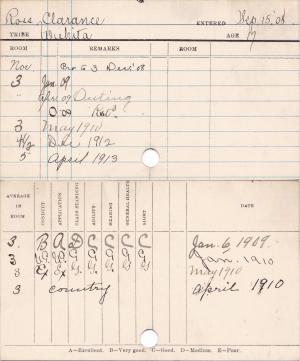 Rose, Clarance ENTERED Sep. 15, 08
TRIBE Wichita AGE 17
ROOM REMARKS ROOM
Nov. Pro to 3 Dec. '08
3 Jan. 09
" Apr. 09 Outing
3 May 1910
4½ Dec 1912
5 April 1913
AVERAGE IN ROOM CONDUCT APPLICATION CLASS STANDING ABILITY BEARING GENERAL HEALTH SIGHT DATE
3. B A D C C C C Jan. 6, 1909.
3 V.G. V.G. G. G. G. G. G. Jan. 1910
3 Ex Ex G. G. G. G. G. May 1910
3 country April 1910
A—Excellent. B—Very good. C—Good. D—Medium. E—Poor.